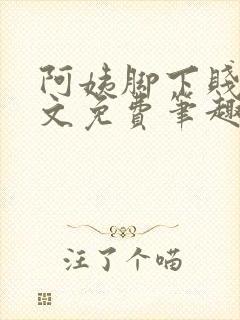 阿姨脚下贱
文免费笔趣
注了个喵